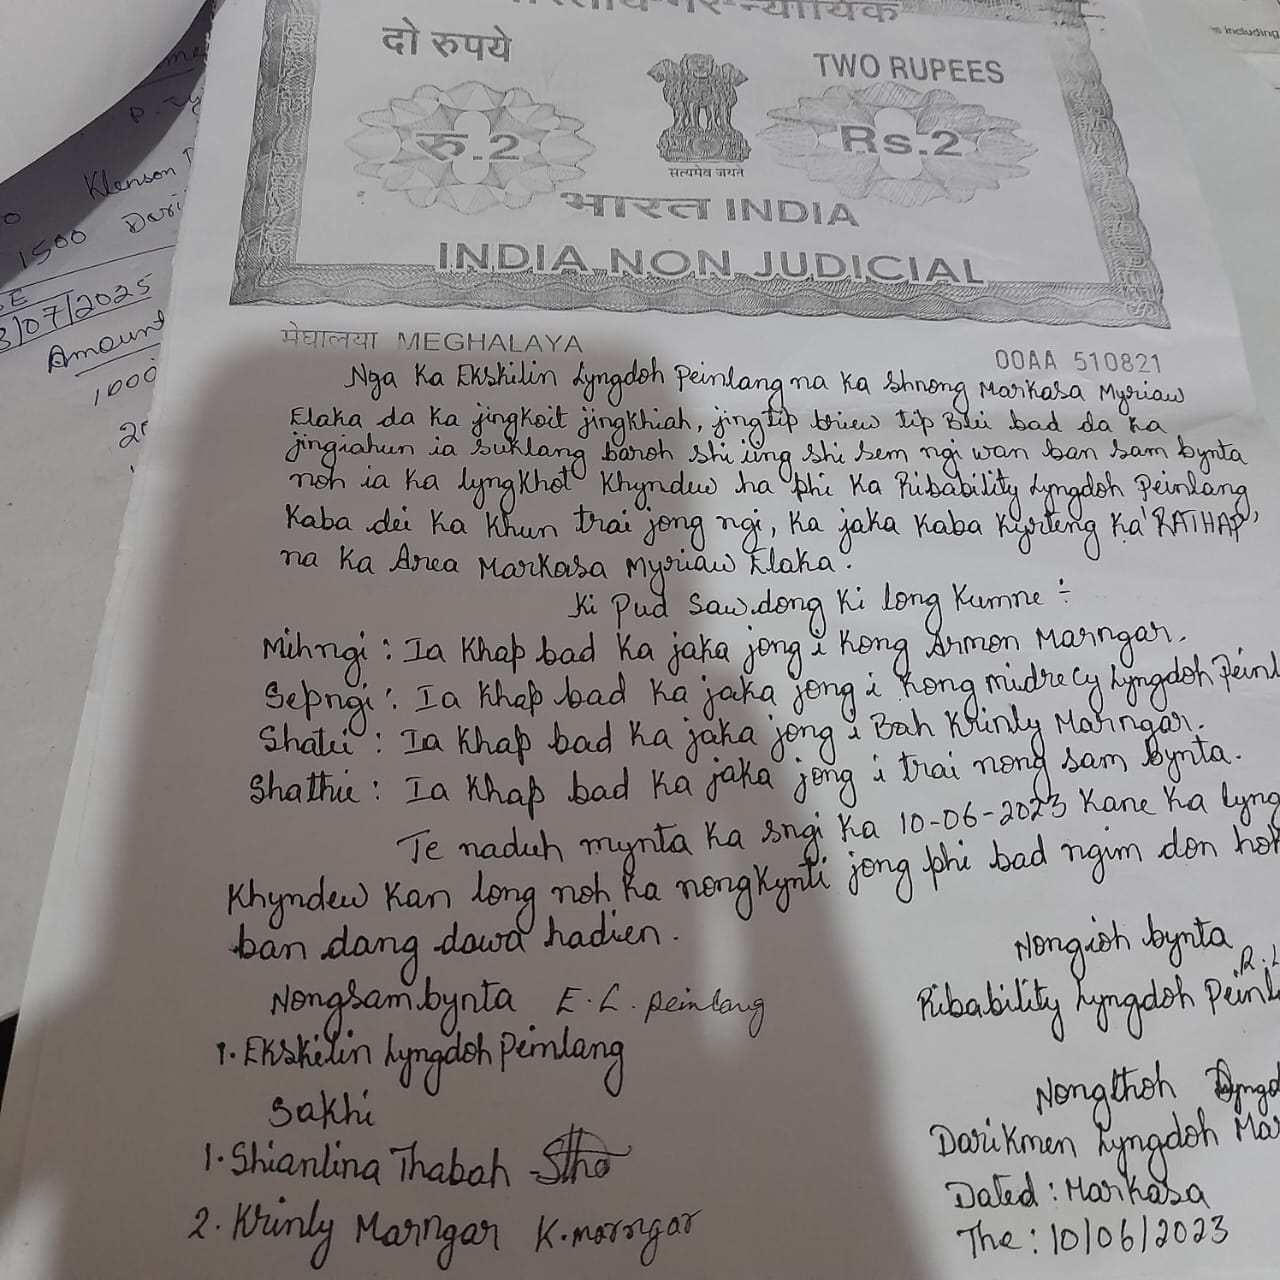 दो रुपये
TWO RUPEES
रु.2
Rs.2
सत्यमेव जयते
भारत INDIA
INDIA NON JUDICIAL
मेघालया MEGHALAYA
00AA 510821
Nga Ka Ekskilin Lyngdoh Peinlang na Ka Shnong Markasa Myriaw
Elaka da Ka jingkoit jingkhiah, jingtip briew tip Blei bad da Ka
jingiahun ia suklang baroh shi iing shi sem ngi wan ban sam bynta
noh ia Ka lyngkhot Khyndew ha phi Ka Ribability Lyngdoh Peinlang
Kaba dei Ka Khun trai jong ngi, Ka jaka Kaba Kyrteng Ka 'RATHAP'
na Ka Area Markasa Myriaw Elaka.
Ki Pud Sawdong Ki long Kumne :-
Mihngi : Ia Khap bad Ka jaka jong i Kong Armon Marngar.
Sepngi : Ia Khap bad Ka jaka jong i Kong midrecy Lyngdoh Peinl
Shatei : Ia Khap bad Ka jaka jong i Bah Krinly Marngar.
Shathie : Ia Khap bad Ka jaka jong i trai nong sam bynta.
Te naduh mynta Ka sngi Ka 10-06-2023 Kane Ka lyng
Khyndew Kan long noh Ka nongkynti jong phi bad ngim don hok
ban dang dawa hadien.
Nongioh bynta
R.L
Nongsam bynta E.L. Peinlang
Ribability Lyngdoh Peinl
1. Ekskilin Lyngdoh Peinlang
Sakhi
Nongthoh
1. Shianlina Thabah
Darikmen Lyngdoh Mar
Dated : Markasa
2. Krinly Marngar K. marngar
The : 10/06/2023
Klenson
1500 Dari
/07/2025
Amount
1000
s including